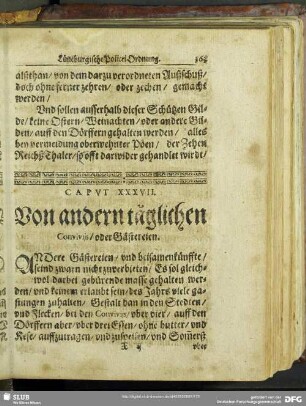 Lüneburgische Policei-Ordnung. 165
alsdthan / von dem darzu verordneten Außschuß /
doch ohne ferner zehren / oder zechen / gemacht
werden /
Vnd sollen ausserhalb dieser Schützen Gil-
de / keine Ostern / Weinachten / oder andere Gil-
den / auff den Dörffern gehalten werden / alles
bey vermeidung oberwehnter Pöen / der Zehen
Reichß Thaler / so offt darwider gehandlet wirdt /
CAPVT XXXVII.
Von andern täglichen
Conviviis / oder Gästereien.
ANdere Gästereien / vnd beisamenkünffte /
seind zwarn nicht zuverbieten / Es sol gleich-
wol darbei gebürende masse gehalten wer-
den / vnd keinem erlaubt sein / des Jahrs viele ga-
stungen zuhalten / Gestalt dan in den Stedten /
vnd Flecken / bei den Conviviis vber vier / auff den
Dörffern aber / vber drei Essen / ohne butter / vnd
Kese / auffzutragen / vnd zuspeisen / vnd
X
vber
SLUB
Wir führen Wissen.
gefördert von der
Deutschen Forschungsgemeinschaft